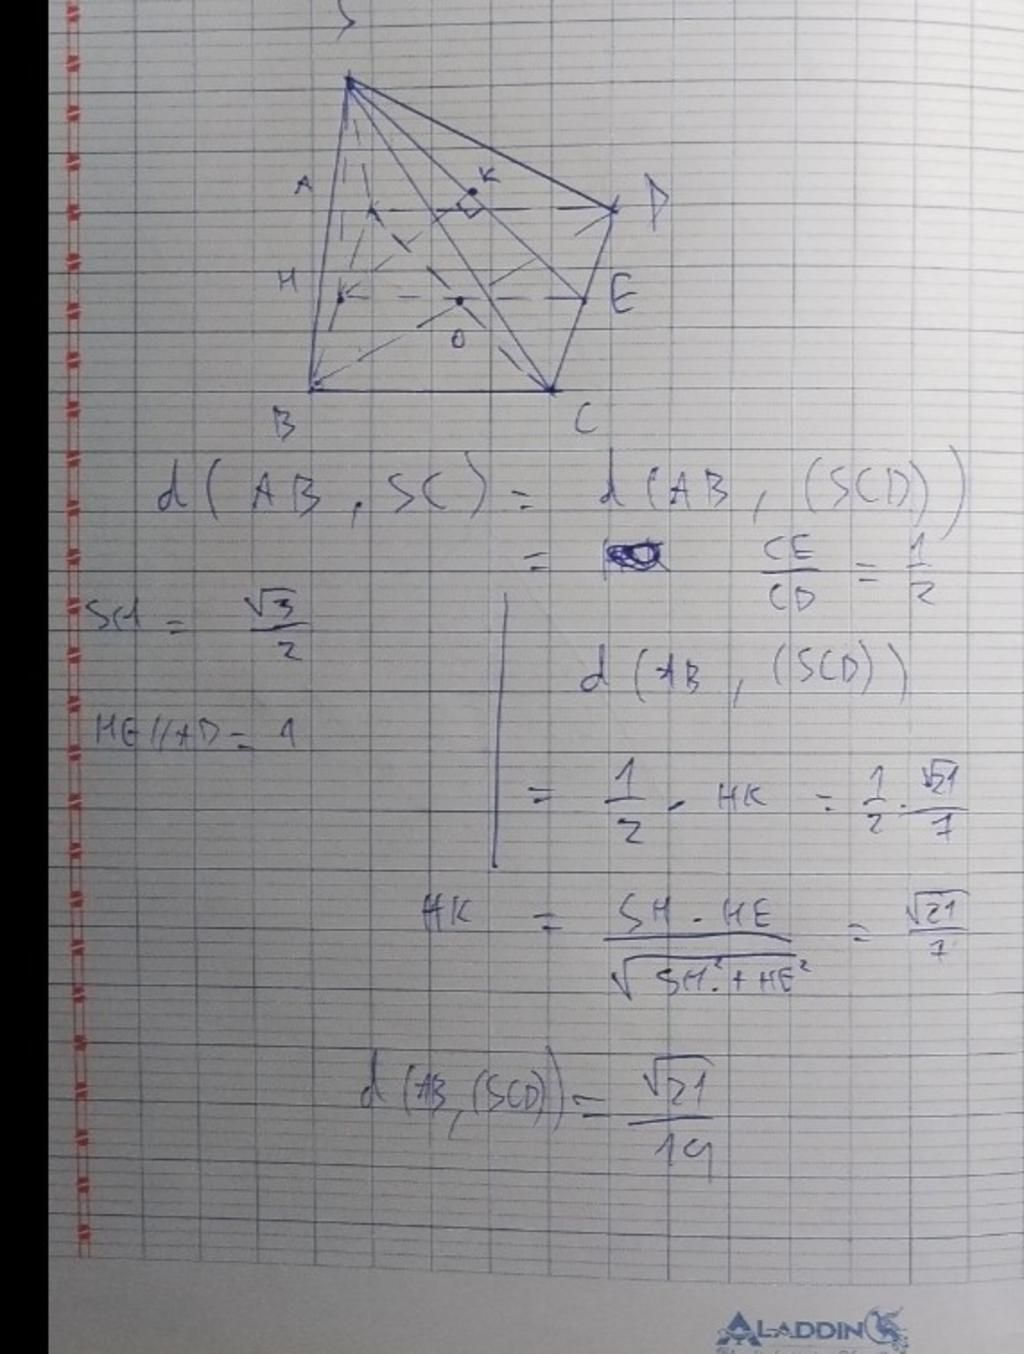 S
A
K
D
H
E
O
B
C
d(AB, SC) = d(AB, (SCD))
= CE/CD = 1/2
SH = √3/2
d(AB, (SCD))
HE//AD = 1
= 1/2 . HK = 1/2 . √21/7
HK = SH . HE / √SH² + HE² = √21/7
d(AB, (SCD)) = √21/14
ALADDIN